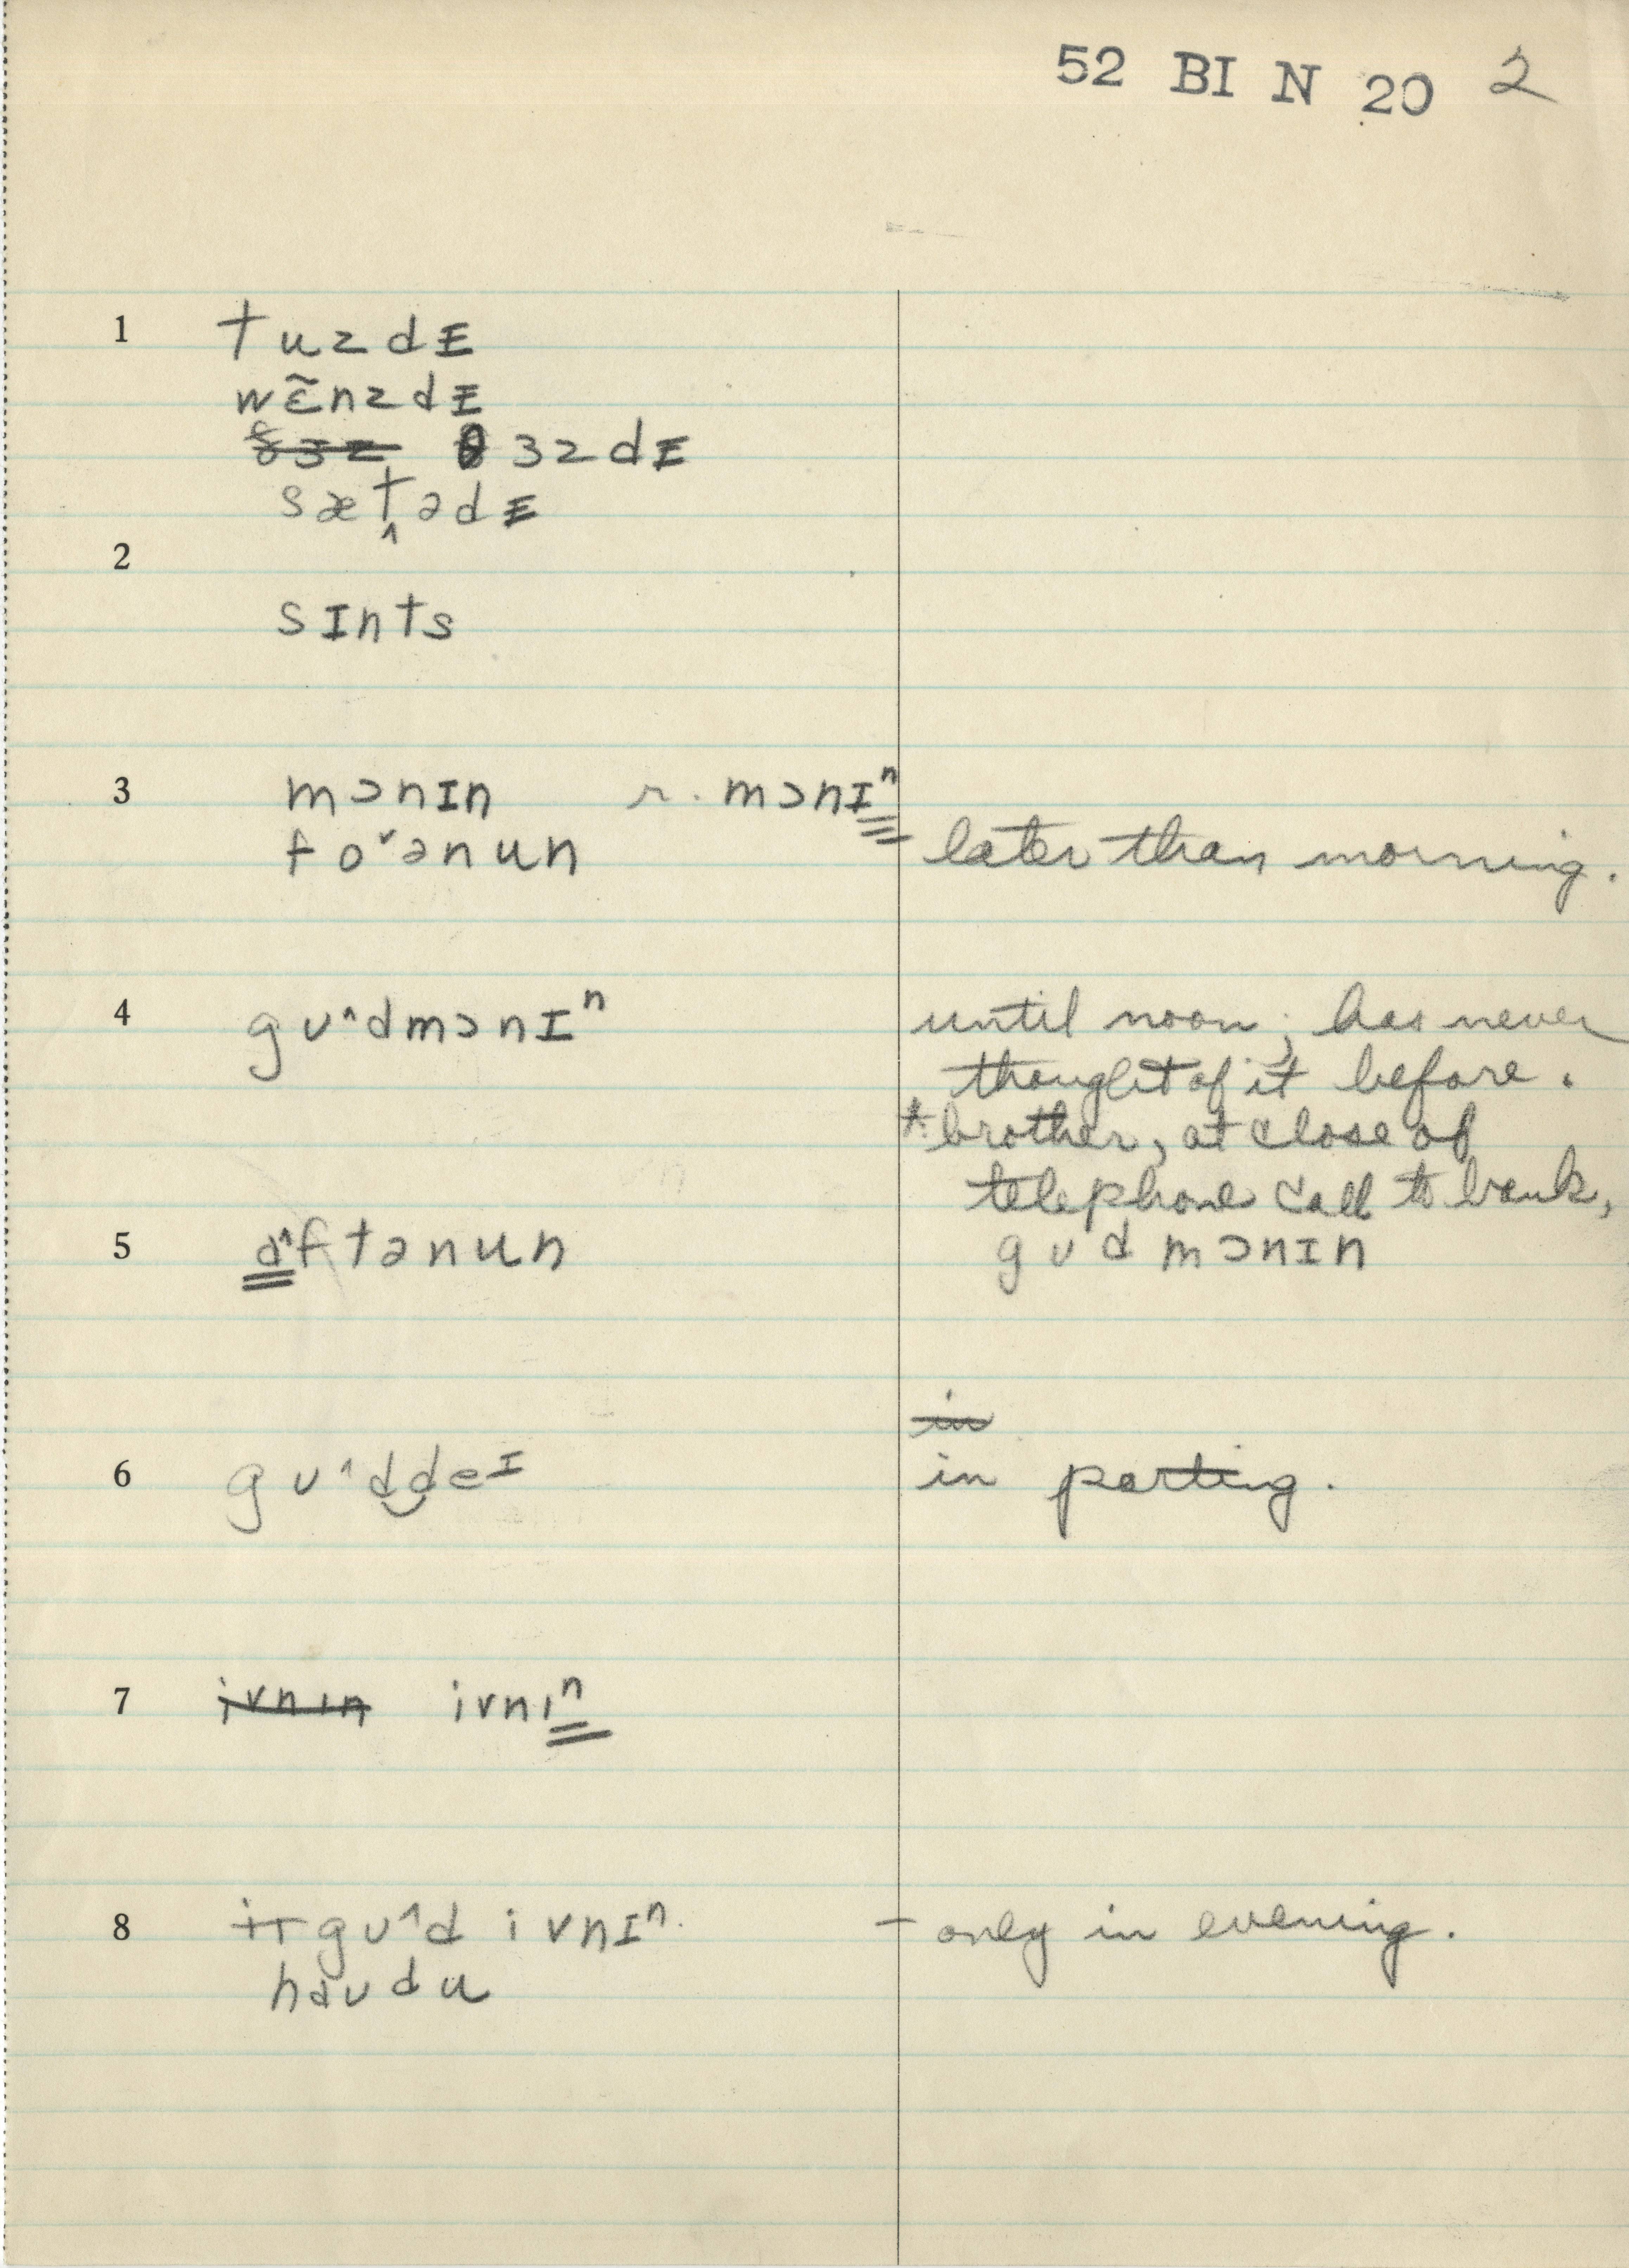 52 BI N 20 2
1 tuzdɪ
wɛ̃nzdɪ
θɜzdɪ
sæt̬ədɪ
2
sɪnts
3 mɔnɪn r. mɔnɪⁿ
fo˅ənun later than morning.
4 gʊ^dmɔnɪⁿ until noon; has never
thought of it before.
* brother, at close of
telephone call to bank,
5 a^ftənun gʊd mɔnɪn
in
6 gʊ^ddeᴵ in parting.
7 ivnɪn ivnɪⁿ
8 gʊ^d ivnɪⁿ. – only in evening.
haʊdu